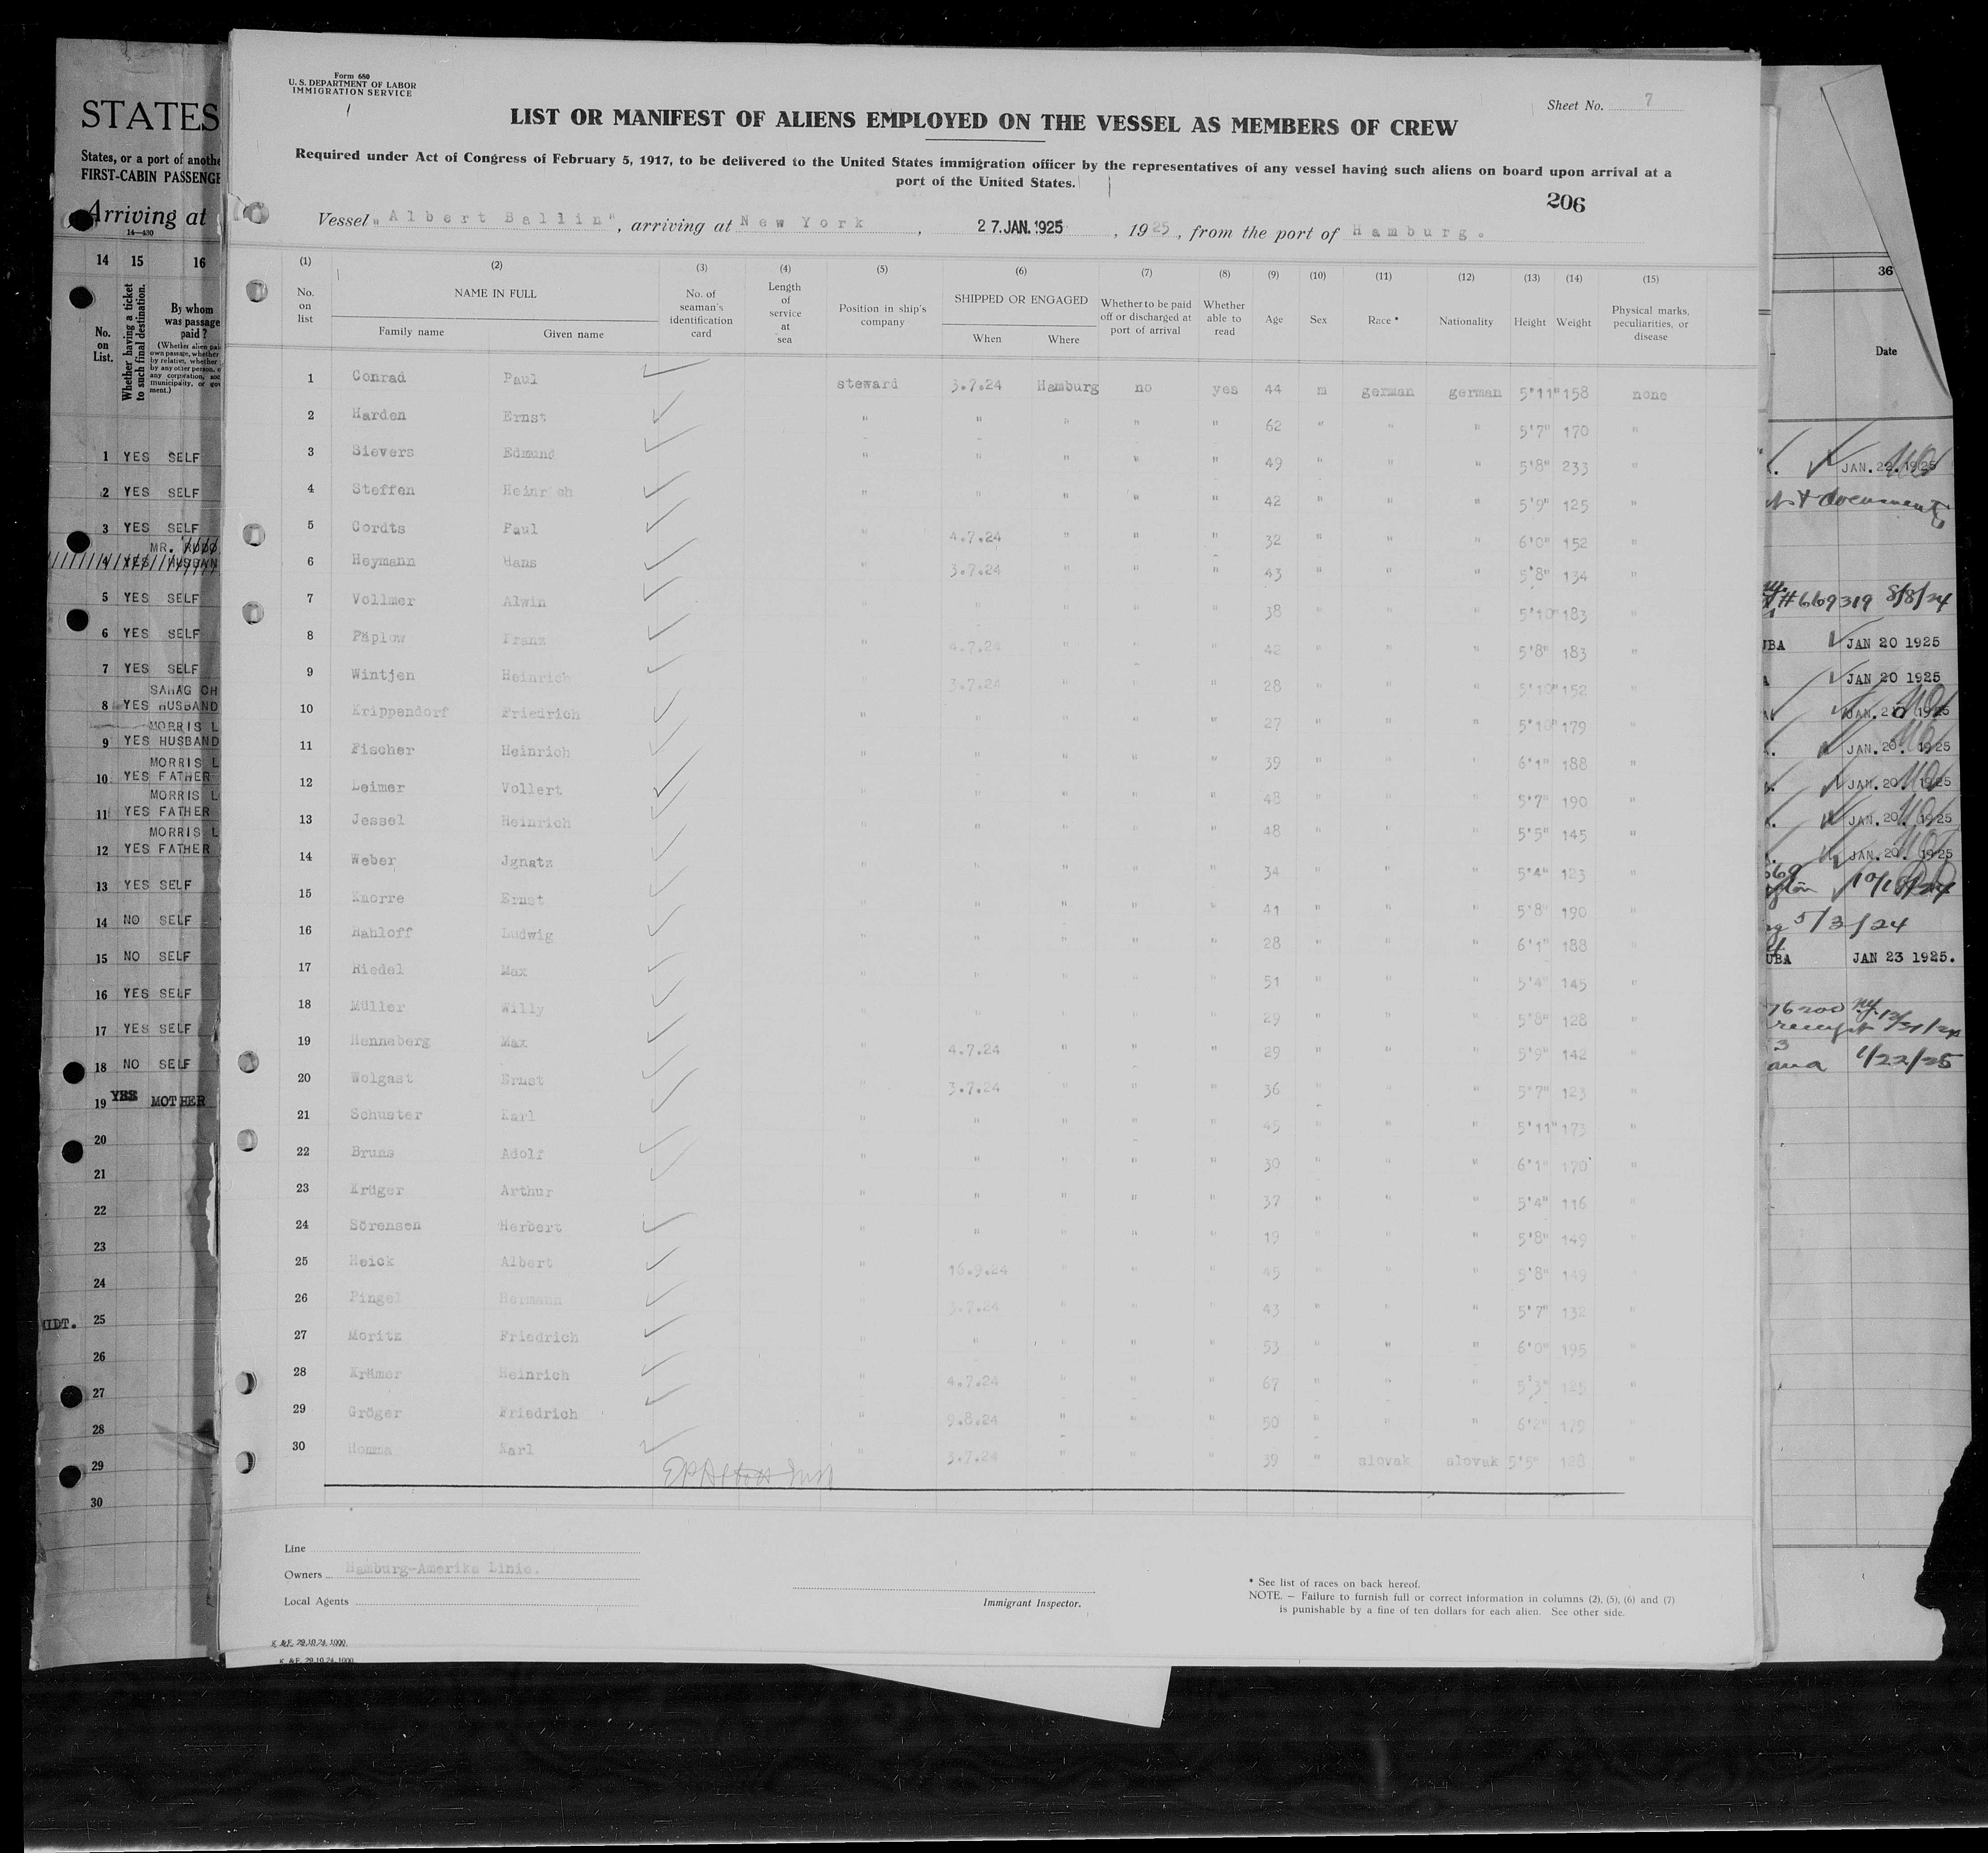 Form 680
U. S. DEPARTMENT OF LABOR
IMMIGRATION SERVICE
Sheet No. 7
LIST OR MANIFEST OF ALIENS EMPLOYED ON THE VESSEL AS MEMBERS OF CREW
Required under Act of Congress of February 5, 1917, to be delivered to the United States immigration officer by the representatives of any vessel having such aliens on board upon arrival at a
port of the United States.
206
Vessel "Albert Ballin", arriving at New York, 27.JAN.1925, 1925, from the port of Hamburg.
(1) (2) (3) (4) (5) (6) (7) (8) (9) (10) (11) (12) (13) (14) (15)
No. on list NAME IN FULL Family name Given name No. of seaman's identification card Length of service at sea Position in ship's company SHIPPED OR ENGAGED When Where Whether to be paid off or discharged at port of arrival Whether able to read Age Sex Race * Nationality Height Weight Physical marks, peculiarities, or disease
1 Conrad Paul steward 3.7.24 Hamburg no yes 44 m german german 5'11" 158 none
2 Harden Ernst " " " " " 62 " " " 5'7" 170 "
3 Sievers Edmund " " " " " 49 " " " 5'8" 233 "
4 Steffen Heinrich " " " " " 42 " " " 5'9" 125 "
5 Cordts Paul " 4.7.24 " " " 32 " " " 6'0" 152 "
6 Heymann Hans " 3.7.24 " " " 43 " " " 5'8" 134 "
7 Vollmer Alwin " " " " " 38 " " " 5'10" 183 "
8 Päplow Franz " 4.7.24 " " " 42 " " " 5'8" 183 "
9 Wintjen Heinrich " 3.7.24 " " " 28 " " " 5'10" 152 "
10 Krippendorf Friedrich " " " " " 27 " " " 5'10" 179 "
11 Fischer Heinrich " " " " " 39 " " " 6'1" 188 "
12 Leimer Vollert " " " " " 48 " " " 5'7" 190 "
13 Jessel Heinrich " " " " " 48 " " " 5'5" 145 "
14 Weber Jgnatz " " " " " 34 " " " 5'4" 123 "
15 Knorre Ernst " " " " " 41 " " " 5'8" 190 "
16 Hahloff Ludwig " " " " " 28 " " " 6'1" 188 "
17 Riedel Max " " " " " 51 " " " 5'4" 145 "
18 Müller Willy " " " " " 29 " " " 5'8" 128 "
19 Henneberg Max " 4.7.24 " " " 29 " " " 5'9" 142 "
20 Wolgast Ernst " 3.7.24 " " " 36 " " " 5'7" 123 "
21 Schuster Karl " " " " " 45 " " " 5'11" 173 "
22 Bruns Adolf " " " " " 30 " " " 6'1" 170 "
23 Krüger Arthur " " " " " 37 " " " 5'4" 116 "
24 Sörensen Herbert " " " " " 19 " " " 5'8" 149 "
25 Heick Albert " 16.9.24 " " " 45 " " " 5'8" 149 "
26 Pingel Hermann " 3.7.24 " " " 43 " " " 5'7" 132 "
27 Moritz Friedrich " " " " " 53 " " " 6'0" 195 "
28 Krämer Heinrich " 4.7.24 " " " 67 " " " 5'3" 125 "
29 Gröger Friedrich " 9.8.24 " " " 50 " " " 6'2" 179 "
30 Homma Karl " 3.7.24 " " " 39 " slovak slovak 5'5" 128 "
Line
Owners Hamburg-Amerika Linie.
Local Agents
Immigrant Inspector.
* See list of races on back hereof.
NOTE. — Failure to furnish full or correct information in columns (2), (5), (6) and (7)
is punishable by a fine of ten dollars for each alien. See other side.
K. & F. 29.10.24. 1000.
K. & F. 29.10.24. 1000.
STATES
States, or a port of anothe
FIRST-CABIN PASSENGE
Arriving at
14—430
14 15 16
No. on List.
Whether having a ticket to such final destination.
By whom was passage paid?
1 YES SELF
2 YES SELF
3 YES SELF
MR.
4 YES HUSBAN
5 YES SELF
6 YES SELF
7 YES SELF
SAHAG CH
8 YES HUSBAND
MORRIS L
9 YES HUSBAND
MORRIS L
10 YES FATHER
MORRIS L
11 YES FATHER
MORRIS L
12 YES FATHER
13 YES SELF
14 NO SELF
15 NO SELF
16 YES SELF
17 YES SELF
18 NO SELF
19 YES MOTHER
20
21
22
23
24
MIDT. 25
26
27
28
29
30
36
Date
JAN. 22. 1925
documents
#669319 8/8/24
UBA JAN 20 1925
A JAN 20 1925
JAN. 20 1925
JAN. 20. 1925
JAN. 20. 1925
JAN. 20. 1925
JAN. 20. 1925
5/3/24
UBA JAN 23 1925.
76200 ny
receipt
ana 1/22/25